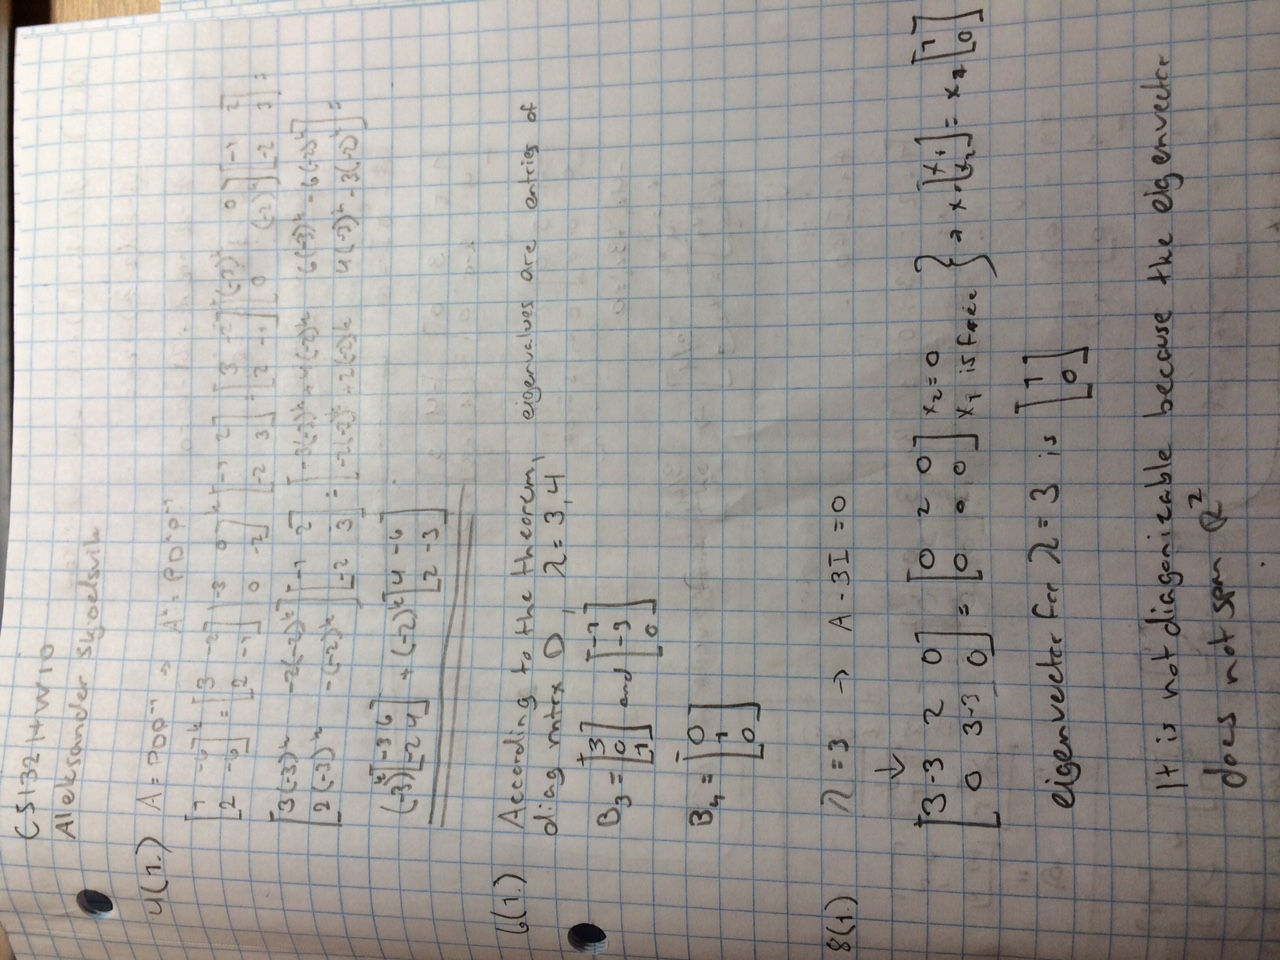 CS132 HW10
Aleksander Skjoelsvik
4(1.) A = PDP⁻¹ → Aᵏ = PDᵏP⁻¹
[1 -6; 2 -6]ᵏ = [3 -2; 2 -1] [-3 0; 0 -2]ᵏ [-1 2; -2 3] = [3 -2; 2 -1] [(-3)ᵏ 0; 0 (-2)ᵏ] [-1 2; -2 3] =
[3(-3)ᵏ -2(-2)ᵏ; 2(-3)ᵏ -(-2)ᵏ] [-1 2; -2 3] = [-3(-3)ᵏ + 4(-2)ᵏ 6(-3)ᵏ - 6(-2)ᵏ; -2(-3)ᵏ + 2(-2)ᵏ 4(-3)ᵏ - 3(-2)ᵏ] =
(-3)ᵏ [-3 6; -2 4] + (-2)ᵏ [4 -6; 2 -3]
6(1.) According to the theorem, eigenvalues are entries of
diag mtrx D, λ = 3,4
B₃ = [3; 0; 1] and [-1; -3; 0]
B₄ = [0; 1; 0]
8(1.) λ = 3 → A - 3I = 0
↓
[3-3 2 0; 0 3-3 0] = [0 2 0; 0 0 0] x₂ = 0 x₁ is free } → x = [x₁; x₂] = x₁ [1; 0]
eigenvector for λ = 3 is [1; 0]
It is not diagonizable because the eigenvector
does not span ℝ²